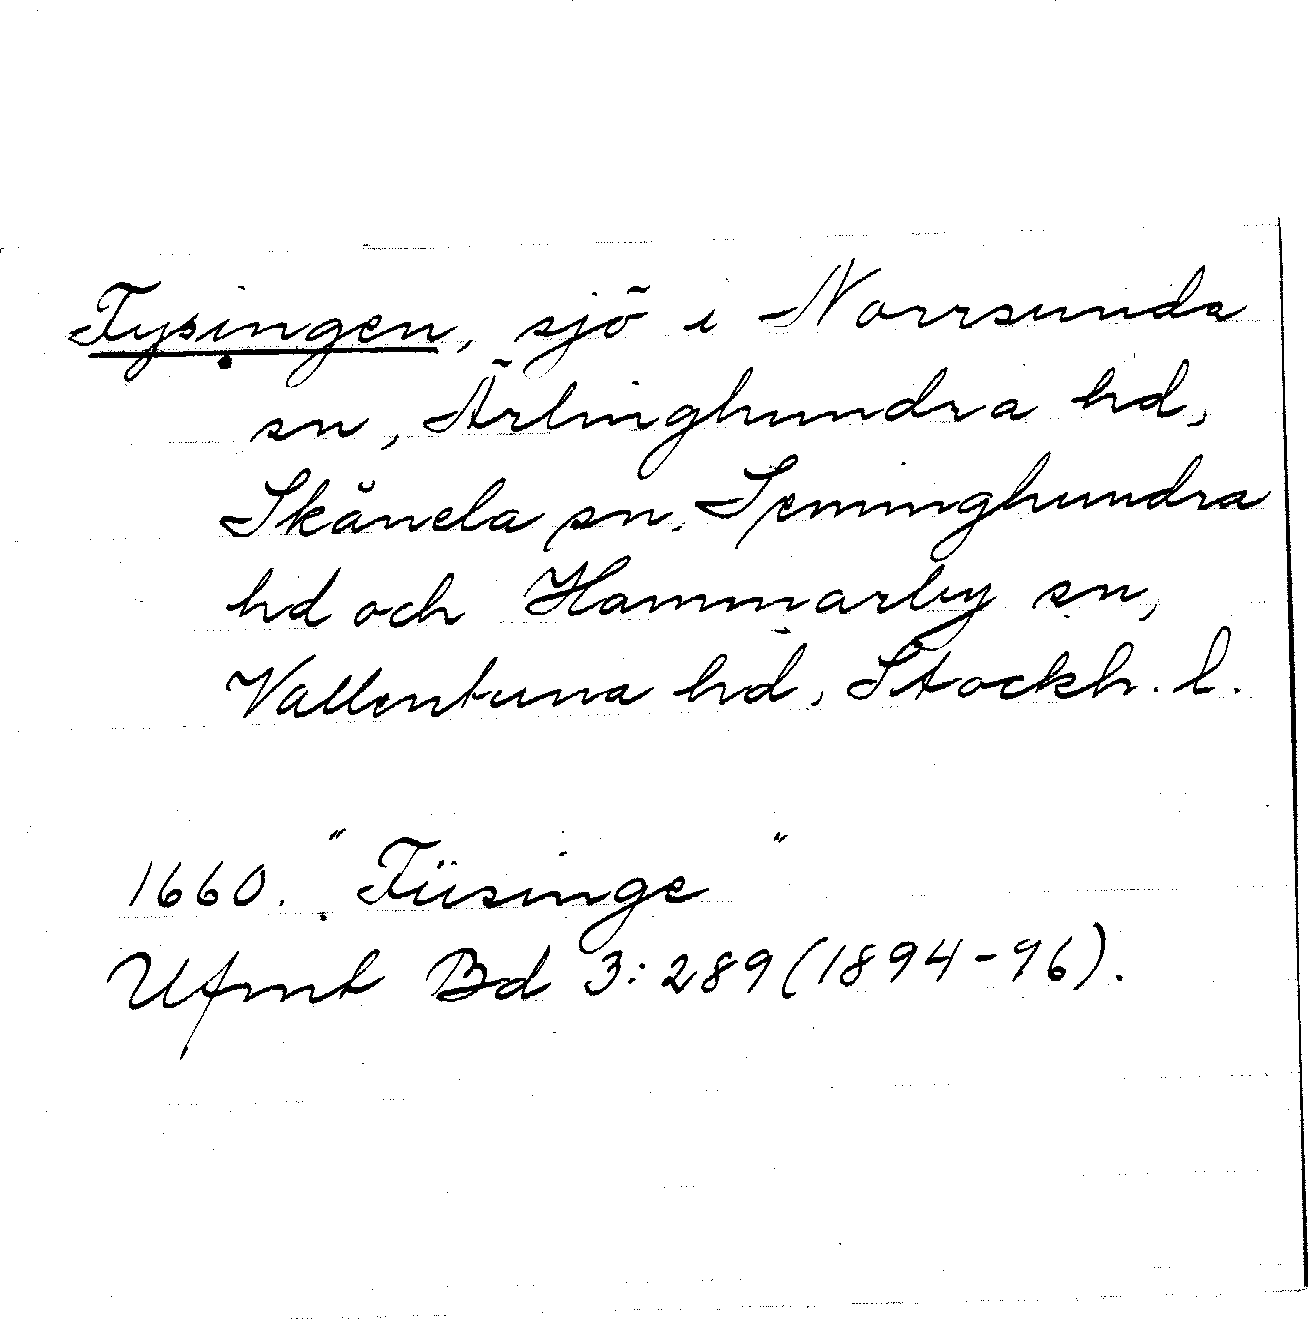 Fysingen, sjö i Norrsunda
sn, Ärlinghundra hd,
Skånela sn, Seminghundra
hd och Hammarby sn,
Vallentuna hd, Stockh. l.
1660. "Füsinge"
Ufmt Bd 3:289(1894-96).